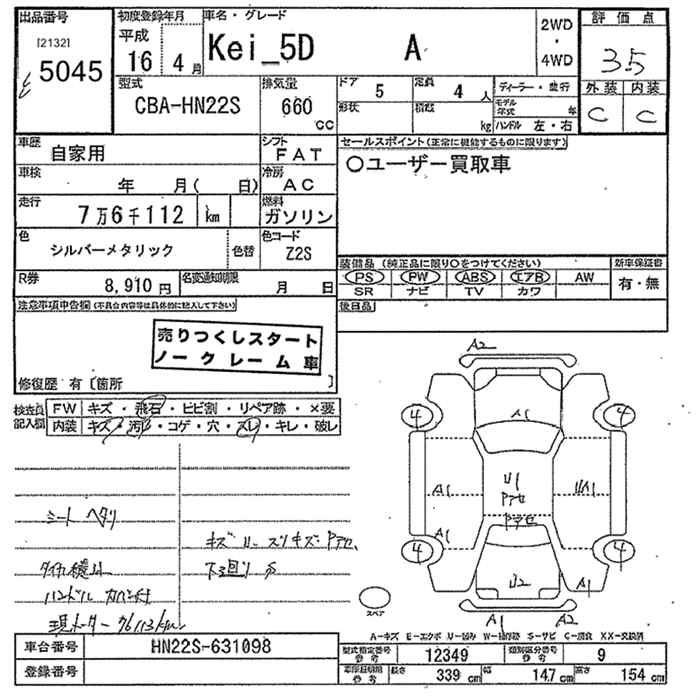 出品番号 初度登録年月 車名・グレード 2WD・4WD 評価点
[2132] 5045 平成16年4月 Kei_5D A 3.5
型式 排気量 ドア 5 定員 4人 ディーラー・並行 外装 内装
CBA-HN22S 660cc 形状 積載 kg モデル年式 年 C C
ハンドル 左・右
車歴 自家用 シフト FAT セールスポイント(正常に機能するものに限ります)
車検 年 月( 日) 冷房 AC ○ユーザー買取車
走行 7万6千112 km 燃料 ガソリン
色 シルバーメタリック 色替 色コード Z2S
装備品(純正品に限り○をつけてください) 新車保証書
R券 8,910円 名変通知期限 月 日 PS PW ABS エアB AW 有・無
SR ナビ TV カワ
注意事項申告欄(不具合内容等は具体的に記入して下さい) 後日品
売りつくしスタート
ノークレーム車
修復歴 有〔箇所 〕
検査員記入欄 FW キズ・飛石・ヒビ割・リペア跡・×要
内装 キズ・汚レ・コゲ・穴・スレ・キレ・破レ
A2
4 A1 4
A1 U1 アセ U/A1
A1 アセ
4 U2 4
A1
A1 A2
シート ヘタリ
キズ スリキズ アセ
下廻り
ハンドル カバー付
現メーター 76113km
スペア
A-キズ E-エクボ U-凹み W-補修跡 S-サビ C-腐食 XX-交換済
車台番号 HN22S-631098 型式指定番号 参考 12349 類別区分番号 参考 9
登録番号 車体諸元 参考 長さ 339 cm 幅 147 cm 高さ 154 cm